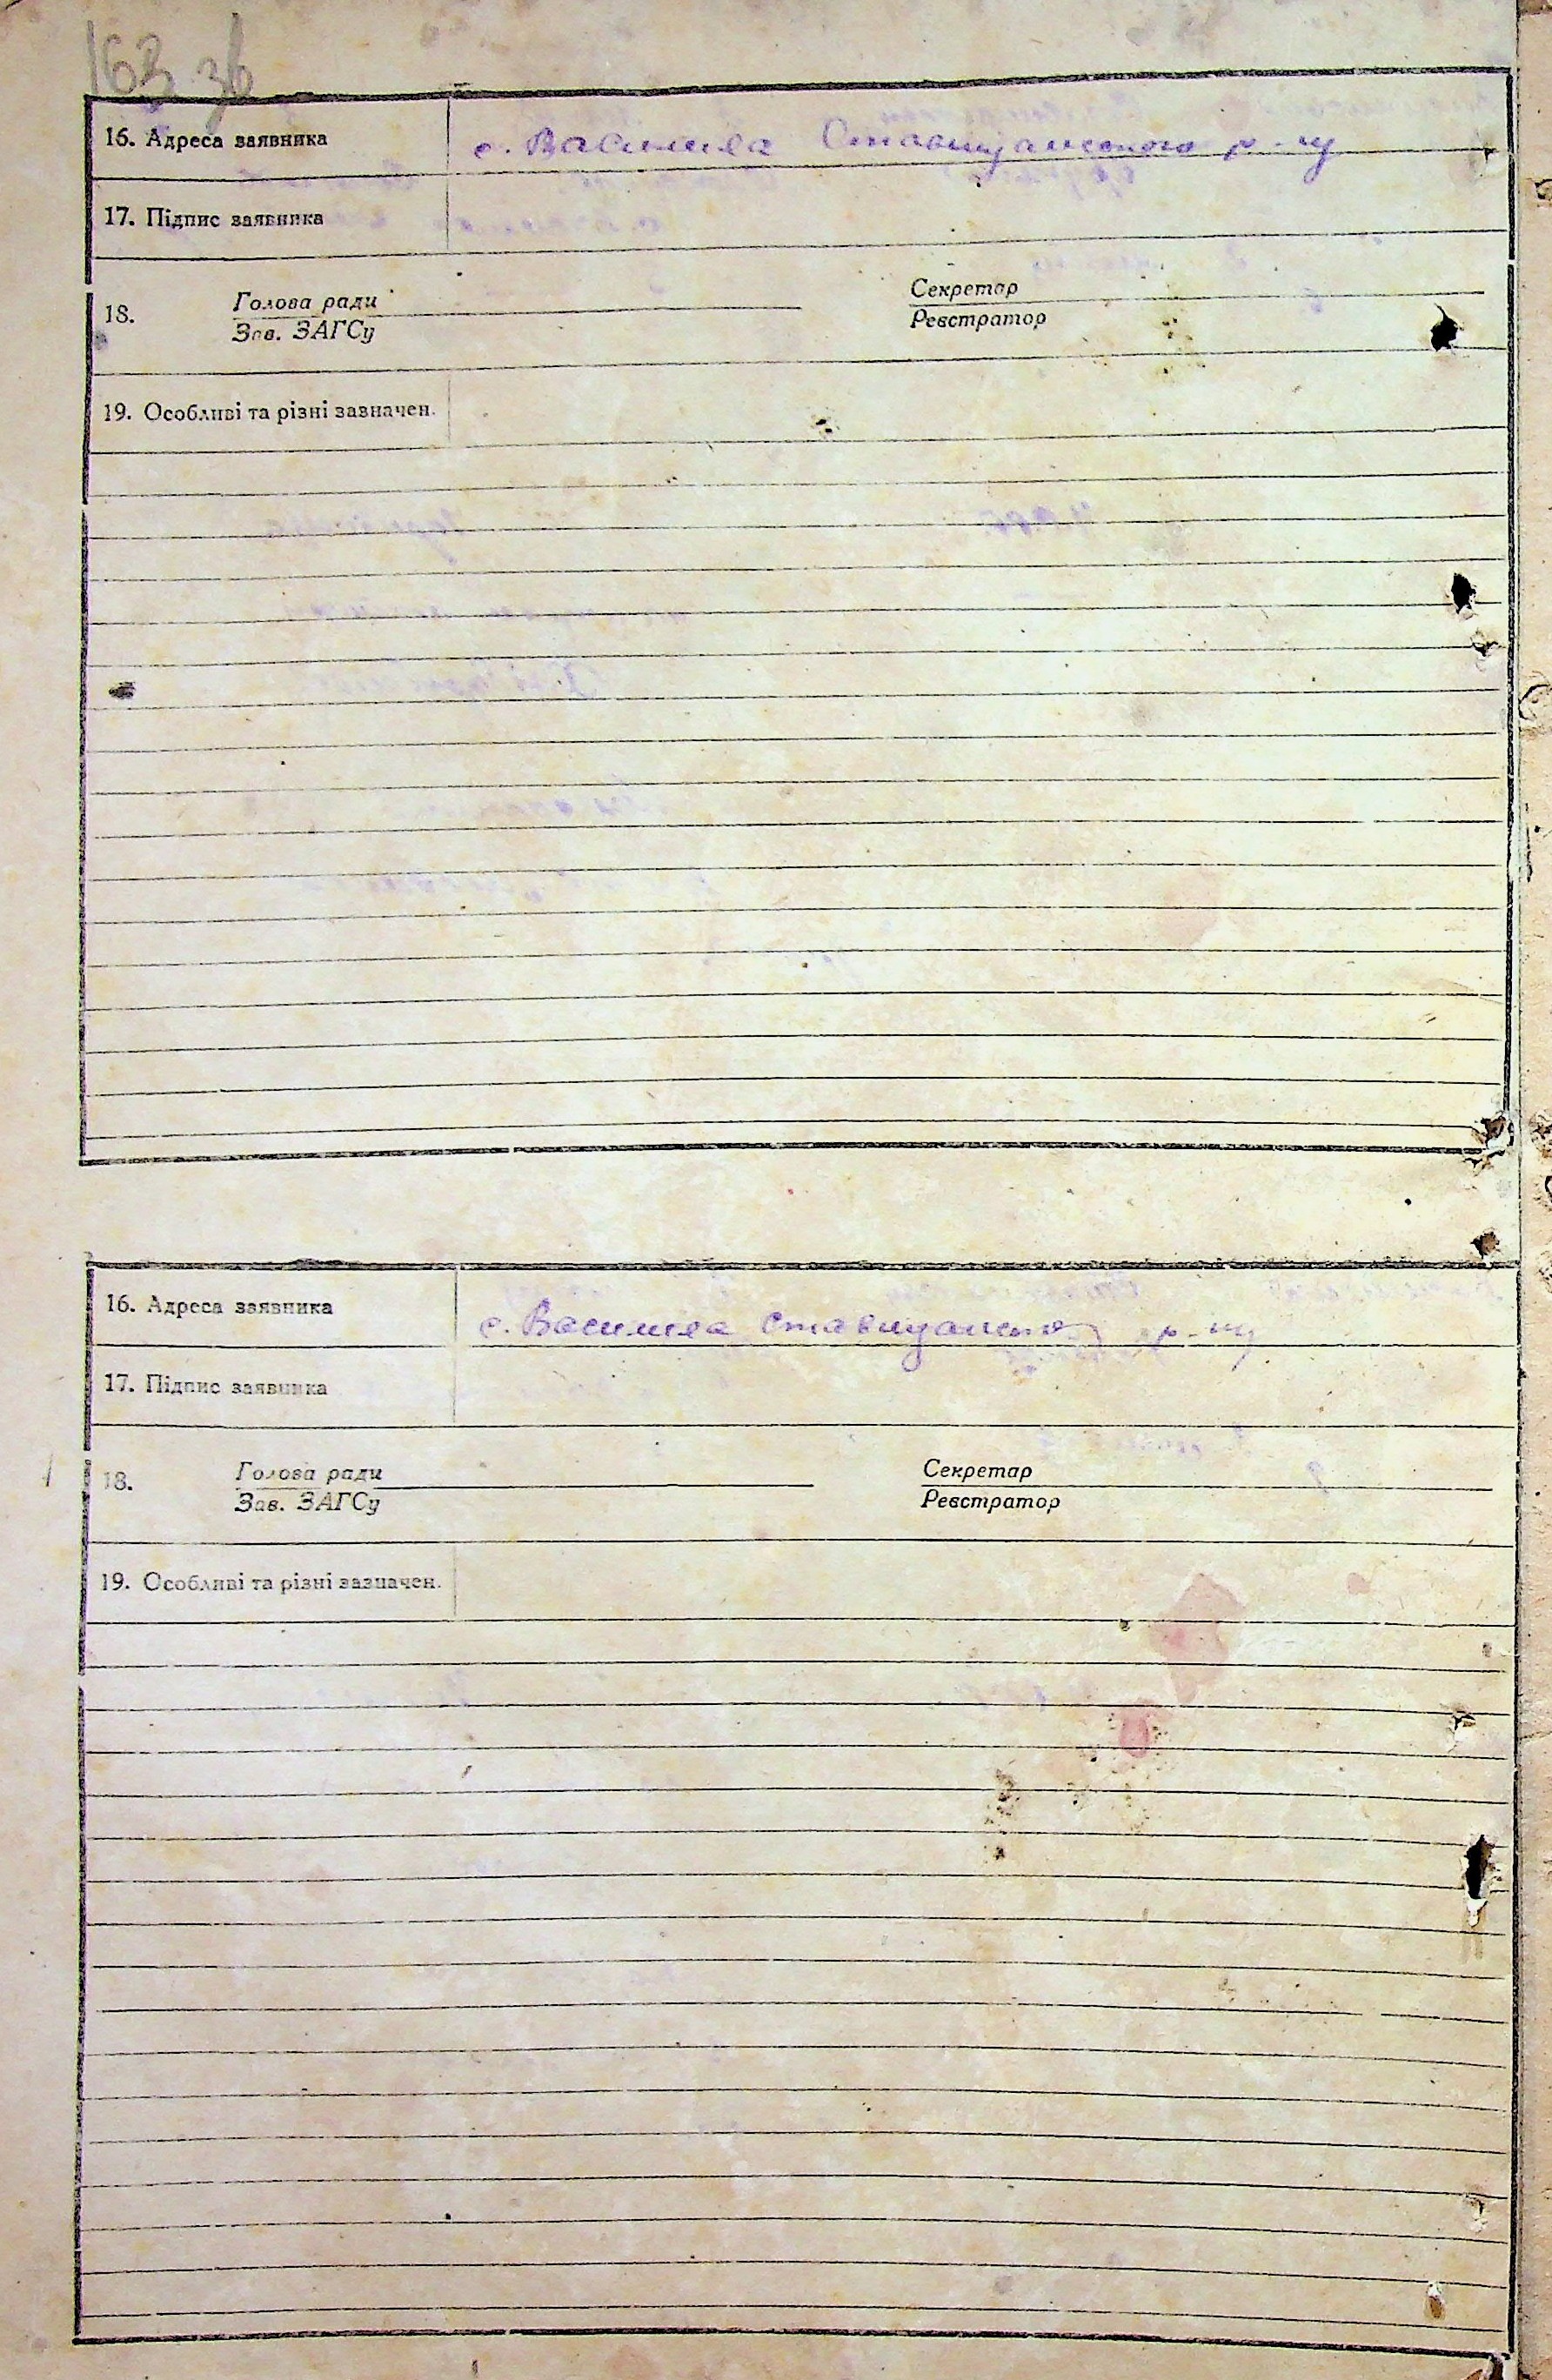 163 зв
16. Адреса заявника с. Василиха Ставищанського р-ну
17. Підпис заявника
18. Голова ради Секретар
Зав. ЗАГСу Реєстратор
19. Особливі та різні зазначен.
16. Адреса заявника с. Василиха Ставищанськ р-ну
17. Підпис заявника
18. Голова ради Секретар
Зав. ЗАГСу Реєстратор
19. Особливі та різні зазначен.